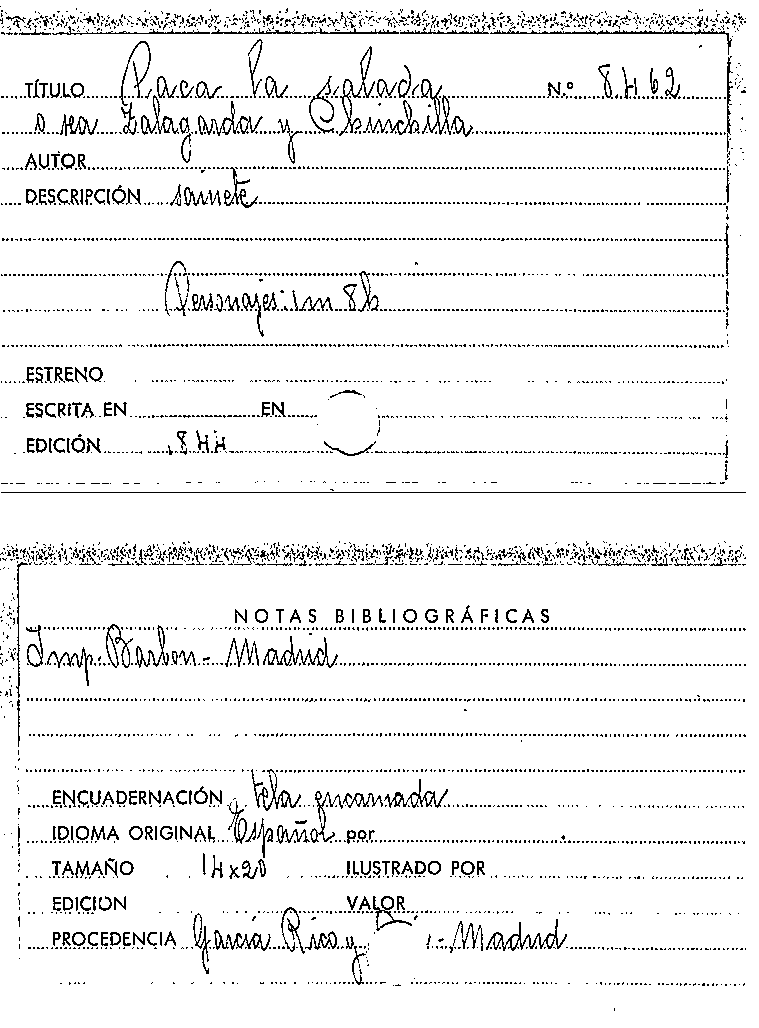 TÍTULO Paca la salada N.º 8462
o sea Zalagarda y Chinchilla
AUTOR
DESCRIPCIÓN sainete
Personajes: 1m 8h
ESTRENO
ESCRITA EN EN
EDICIÓN 1844
NOTAS BIBLIOGRÁFICAS
Imp. Barbon - Madrid
ENCUADERNACIÓN tela encarnada
IDIOMA ORIGINAL Español por
TAMAÑO 14x20 ILUSTRADO POR
EDICION VALOR
PROCEDENCIA García Rico y - Madrid